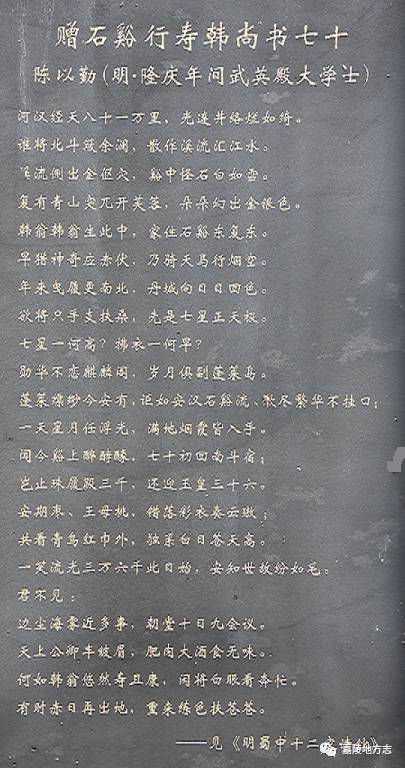 赠石谿行寿韩尚书七十
陈以勤(明·隆庆年间武英殿大学士)
河汉经天八十一万里，光连井络烂如绮。
谁将北斗箴余澜，散作溪流汇江水。
溪流侧出金伛穴，谿中怪石白如雪。
复有青山突兀开芙蓉，朵朵幻出金银色。
韩翁韩翁生此中，家住石谿东复东。
早猎神奇应赤伏，乃骑天马行烟空。
年来曳履更南北，丹城向日日回色。
欲将只手支扶桑，先是七星正天极。
七星一何高？拂衣一何早？
勋华不恋麒麟阁，岁月俱副蓬莱岛。
蓬莱缥缈今安有，讵如安汉石谿流、歌尽繁华不挂口；
一天星月任浮光，满地烟霞皆入手。
闻今谿上醉酕醄，七十初回南斗宿；
岂止珠履殿三千，还迎玉皇三十六。
安期枣、王母桃，错落彩衣奏云璈；
共看青鸟红巾外，独采白日苍天高。
一笑流光三万六千此日始，安知世故纷如毛。
君不见：
边尘海雾近多事，朝堂十日九会议。
天上公卿车蚊眉，肥肉大酒食无味。
何如韩翁悠然寿且康，闲将白眼看奔忙。
有时赤日再出地，重来练色扶苍苍。
——见《明蜀中十二家诗钞》
嘉陵地方志